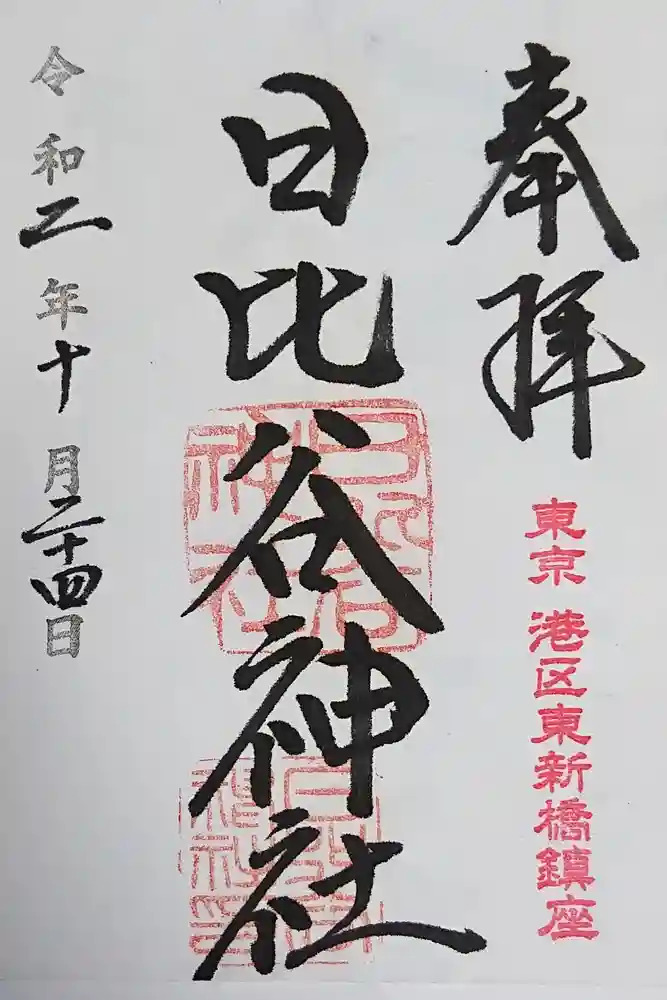 奉拝
東京 港区東新橋鎮座
日比谷神社
日比谷神社
令和二年十月二十四日